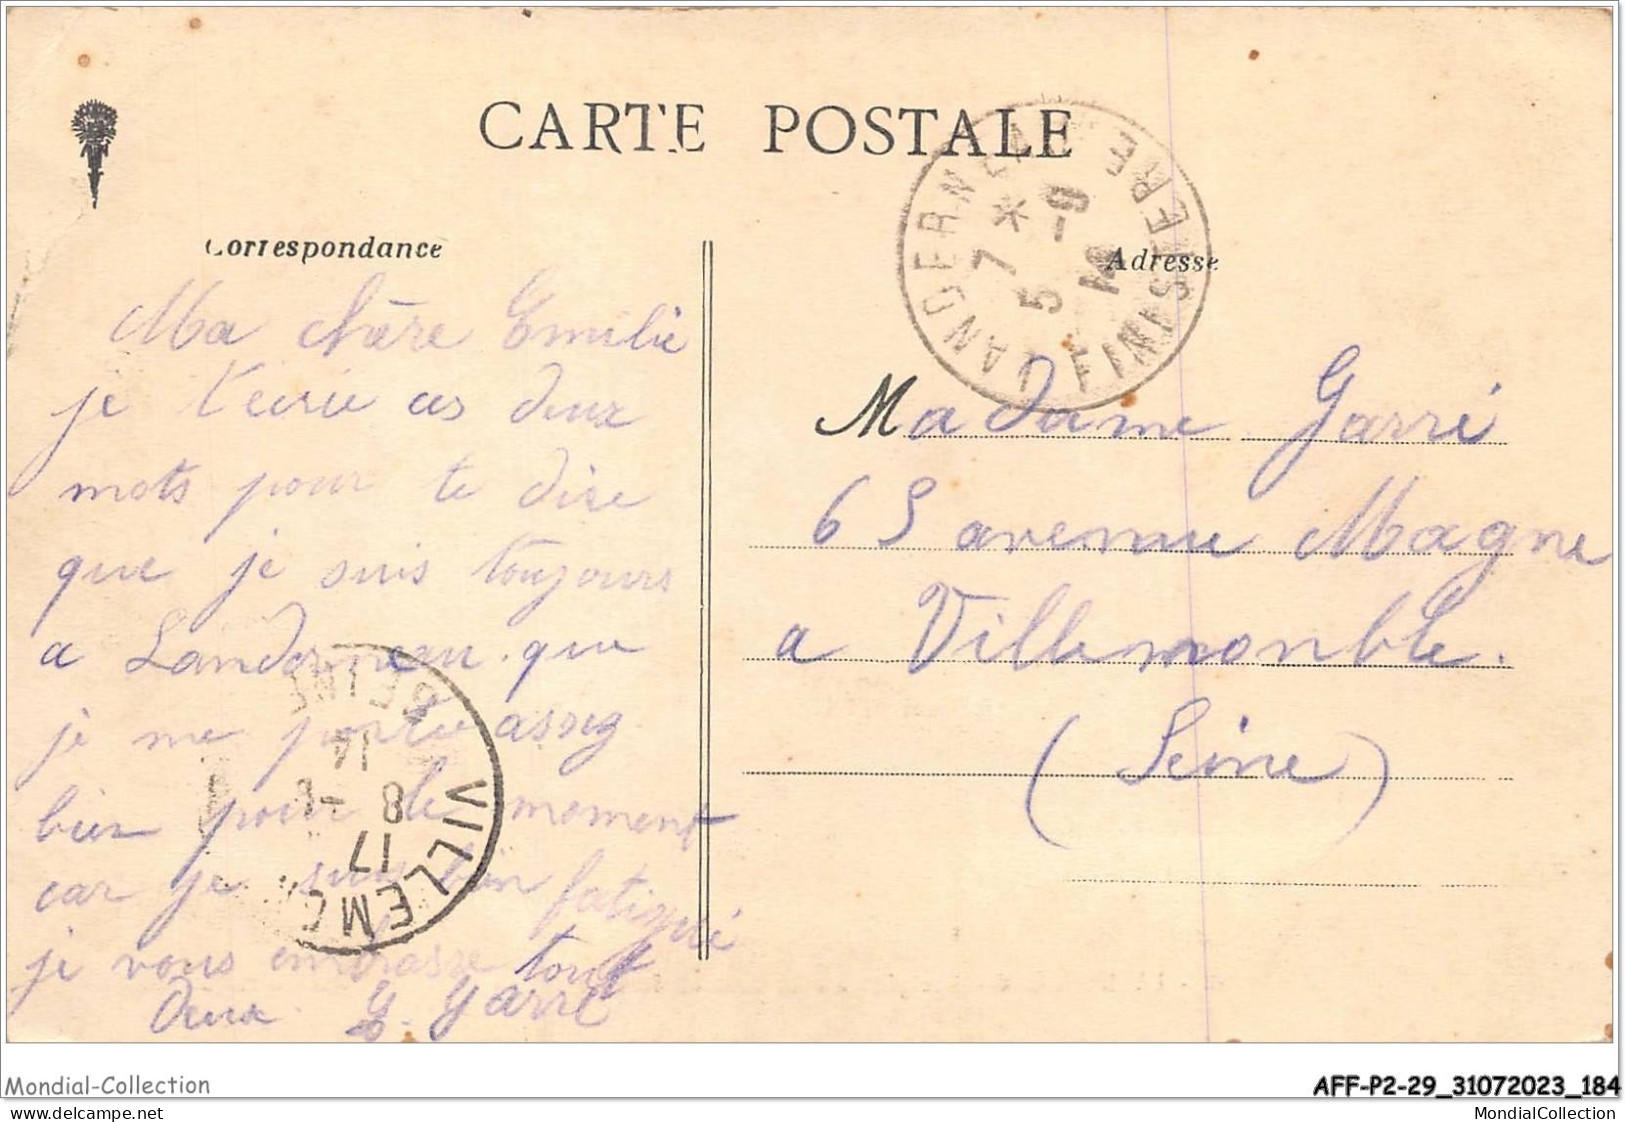 CARTE POSTALE
Correspondance
Ma chère Emilie
je t'ecrie ces deux
mots pour te dire
que je suis toujours
a Landerneau que
je me portie assez
bien pour le moment
car je suis bien fatigué
je vous embrasse tout
Deux G. Garré
LANDERNEAU FINISTERE
7 * 5 5-9 14
VILLEMOMBLE SEINE
17 8 -9 14
Adresse
Madame Garré
65 avenue Magne
a Villemonble.
(Seine)
Mondial-Collection
AFF-P2-29_31072023_184
MondialCollection